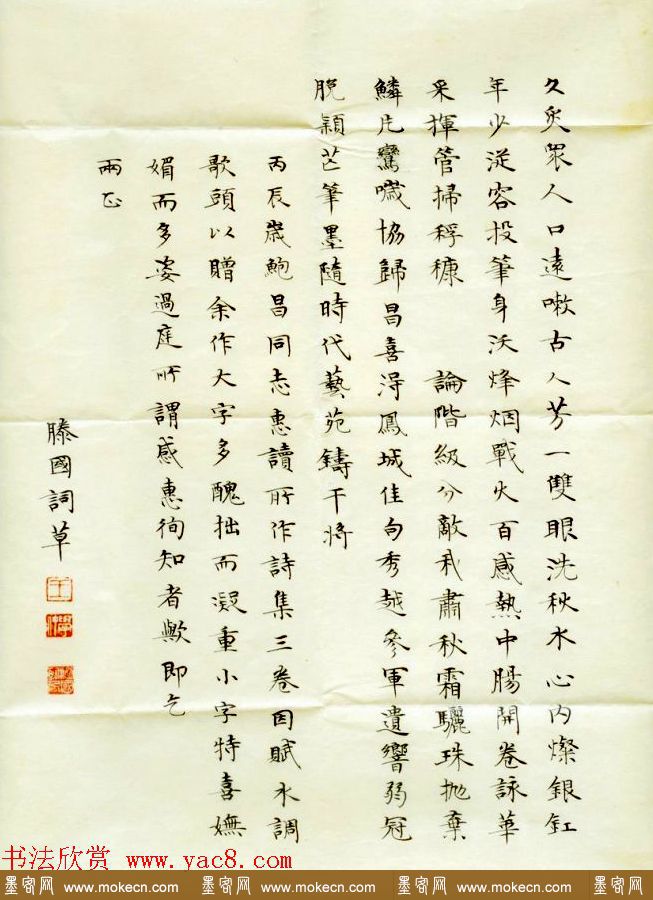 久炙衆人口遠嗽古人芳一雙眼洗秋水心內燦銀釭
年少從容投筆身沃烽烟戰火百感熱中腸開卷詠華
采揮管掃稃穅 論階級分敵我肅秋霜驪珠抛棄
鱗爪鸞噦協歸昌喜得鳳城佳句秀越參軍遺響弱冠
脫穎芒筆墨隨時代藝苑鑄干將
丙辰歲鮑昌同志惠讀所作詩集三卷因賦水調
歌頭以贈余作大字多醜拙而凝重小字特喜嫵
媚而多姿過庭所謂感惠徇知者歟即乞
兩正
滕國詞草
书法欣赏 www.yac8.com
墨客网 www.mokecn.com 墨客网 www.mokecn.com 墨客网 www.mokecn.com